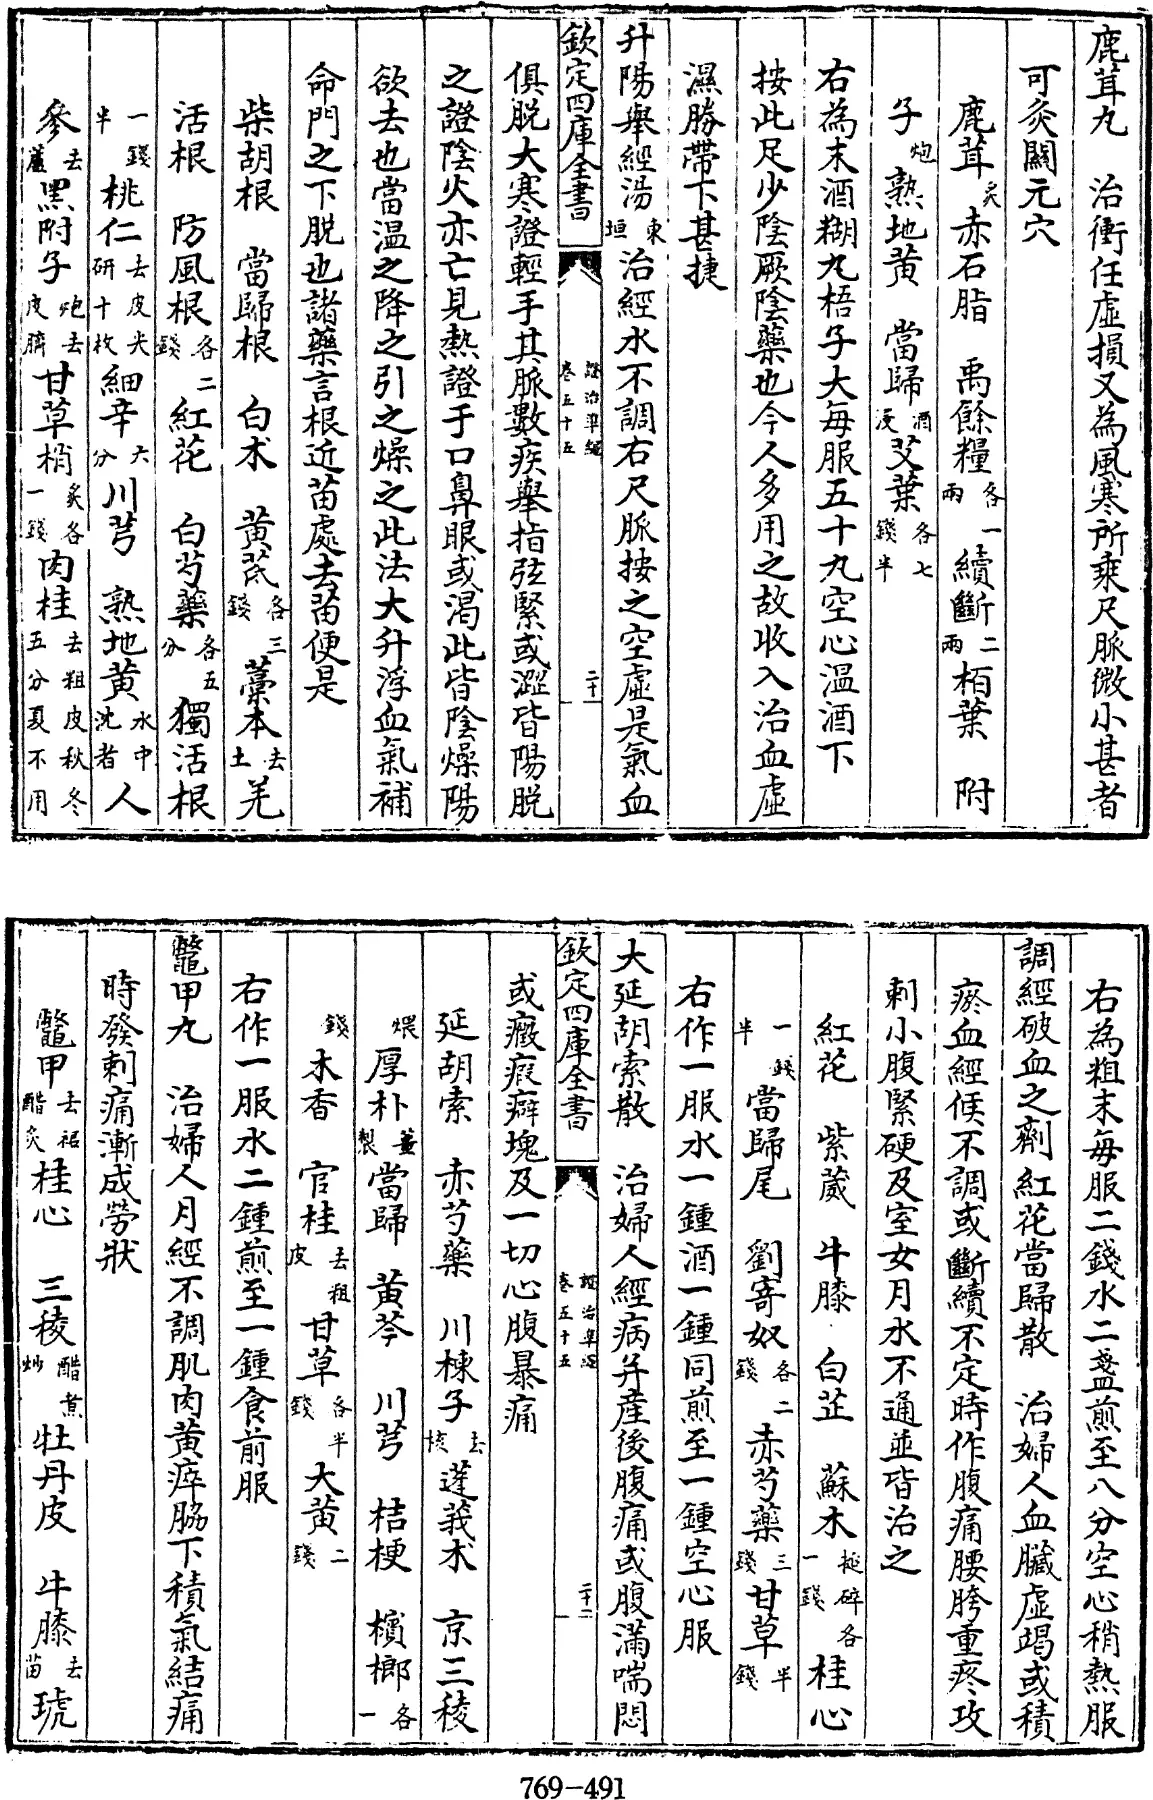 鹿茸丸　治衝任虛損又為風寒所乘尺脈微小甚者
可灸關元穴
鹿茸炙赤石脂　禹餘糧各一兩續斷二兩栢葉　附
子炮熟地黃　當歸酒浸艾葉各七錢半
右為末酒糊丸梧子大每服五十丸空心温酒下
按此足少陰厥陰藥也今人多用之故收入治血虛
濕勝帶下甚捷
升陽舉經湯東垣治經水不調右尺脈按之空虛是氣血
欽定四庫全書　證治準繩　卷五十五　二十一
俱脱大寒證輕手其脈數疾舉指弦緊或澀皆陽脱
之證陰火亦亡見熱證于口鼻眼或渴此皆陰燥陽
欲去也當温之降之引之燥之此法大升浮血氣補
命門之下脱也諸藥言根近苗處去苗便是
柴胡根　當歸根　白术　黃芪各三錢藁本去土羌
活根　防風根各二錢紅花　白芍藥各五分獨活根
一錢半桃仁去皮尖研十枚細辛六分川芎　熟地黃水中沈者人
參去蘆黑附子炮去皮臍甘草梢炙各一錢肉桂去粗皮秋冬五分夏不用
右為粗末每服二錢水二盞煎至八分空心稍熱服
調經破血之劑紅花當歸散　治婦人血臟虛竭或積
瘀血經候不調或斷續不定時作腹痛腰胯重疼攻
刺小腹緊硬及室女月水不通並皆治之
紅花　紫葳　牛膝　白芷　蘇木搥碎各一錢桂心
一錢半當歸尾　劉寄奴各二錢赤芍藥三錢甘草半錢
右作一服水一鍾酒一鍾同煎至一鍾空心服
大延胡索散　治婦人經病并產後腹痛或腹滿喘悶
欽定四庫全書　證治準繩　卷五十五　二十二
或癥瘕癖塊及一切心腹暴痛
延胡索　赤芍藥　川楝子去核蓬莪术　京三稜
煨厚朴薑製當歸　黃芩　川芎　桔梗　檳榔各一
錢木香　官桂去粗皮甘草各半錢大黃二錢
右作一服水二鍾煎至一鍾食前服
鼈甲丸　治婦人月經不調肌肉黃瘁脇下積氣結痛
時發刺痛漸成勞狀
鼈甲去裙醋炙桂心　三稜醋煮炒牡丹皮　牛膝去苗琥
769-491